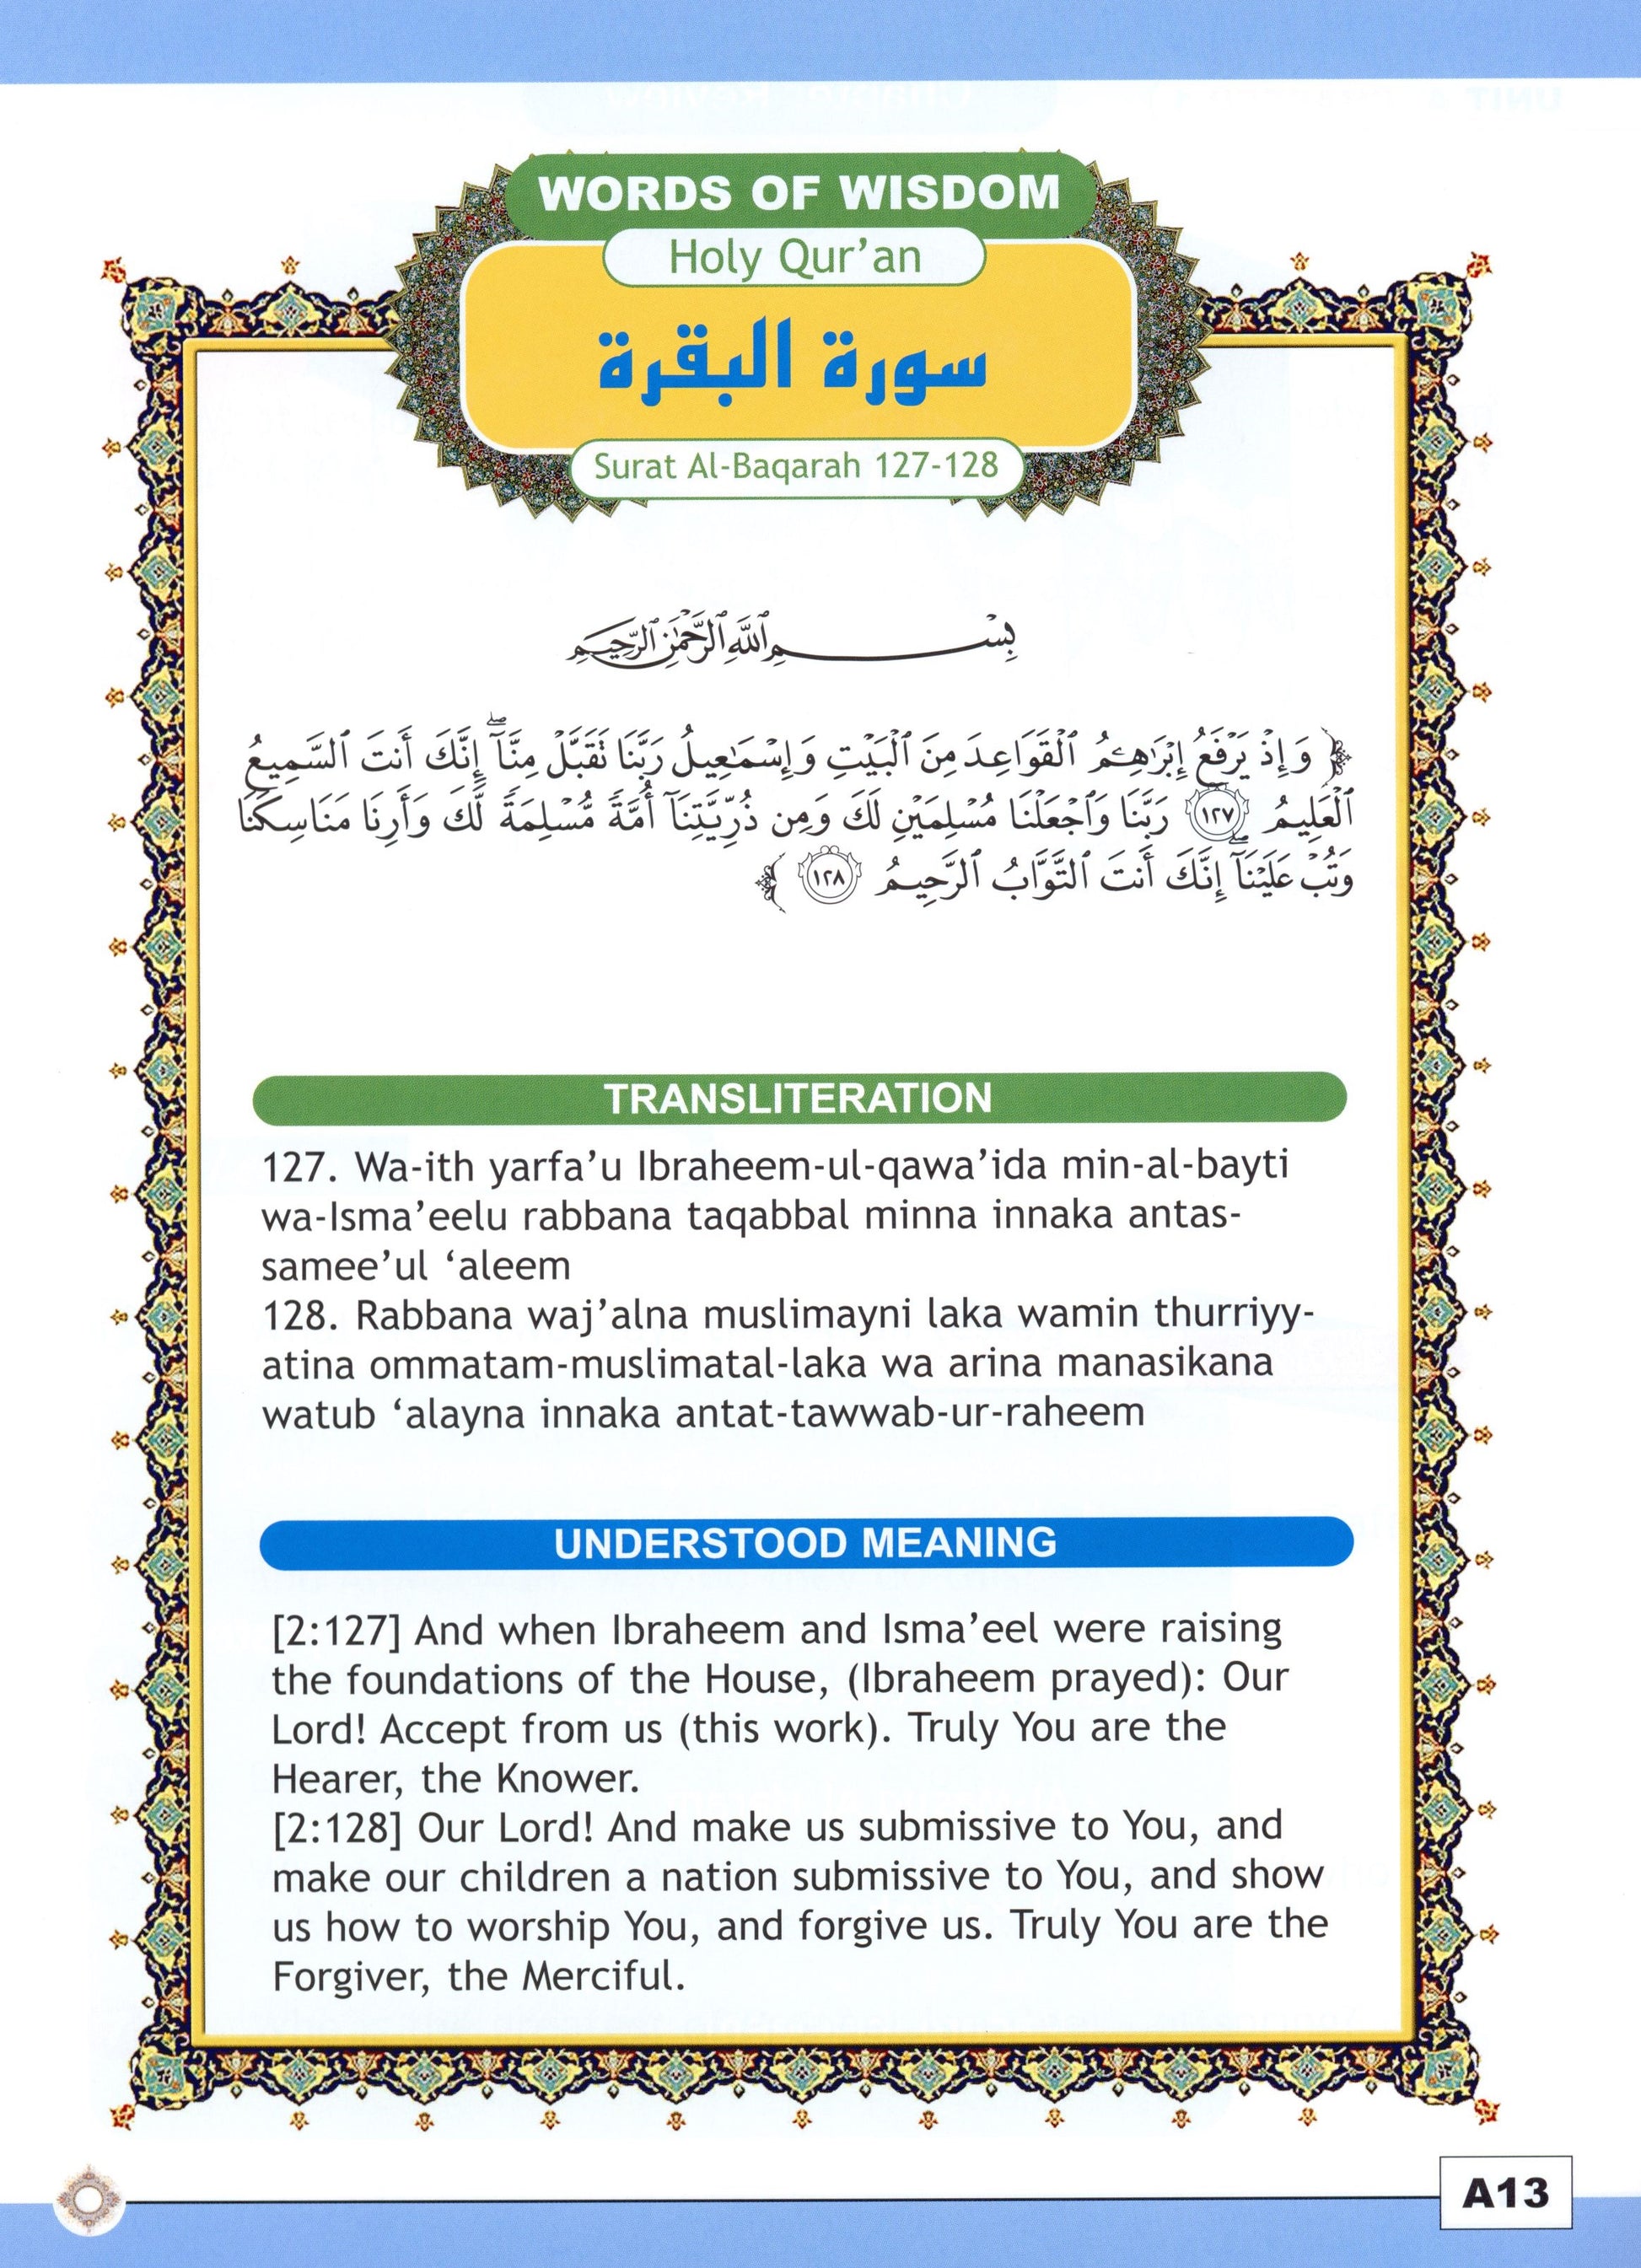 WORDS OF WISDOM
Holy Qur’an
سورة البقرة
Surat Al-Baqarah 127-128
بِسْمِ ٱللَّهِ ٱلرَّحْمَٰنِ ٱلرَّحِيمِ
﴿ وَإِذْ يَرْفَعُ إِبْرَٰهِـۧمُ ٱلْقَوَاعِدَ مِنَ ٱلْبَيْتِ وَإِسْمَٰعِيلُ رَبَّنَا تَقَبَّلْ مِنَّآ ۖ إِنَّكَ أَنتَ ٱلسَّمِيعُ
ٱلْعَلِيمُ ١٢٧ رَبَّنَا وَٱجْعَلْنَا مُسْلِمَيْنِ لَكَ وَمِن ذُرِّيَّتِنَآ أُمَّةً مُّسْلِمَةً لَّكَ وَأَرِنَا مَنَاسِكَنَا
وَتُبْ عَلَيْنَآ ۖ إِنَّكَ أَنتَ ٱلتَّوَّابُ ٱلرَّحِيمُ ١٢٨ ﴾
TRANSLITERATION
127. Wa-ith yarfa’u Ibraheem-ul-qawa’ida min-al-bayti
wa-Isma’eelu rabbana taqabbal minna innaka antas-
samee’ul ‘aleem
128. Rabbana waj’alna muslimayni laka wamin thurriyy-
atina ommatam-muslimatal-laka wa arina manasikana
watub ‘alayna innaka antat-tawwab-ur-raheem
UNDERSTOOD MEANING
[2:127] And when Ibraheem and Isma’eel were raising
the foundations of the House, (Ibraheem prayed): Our
Lord! Accept from us (this work). Truly You are the
Hearer, the Knower.
[2:128] Our Lord! And make us submissive to You, and
make our children a nation submissive to You, and show
us how to worship You, and forgive us. Truly You are the
Forgiver, the Merciful.
A13